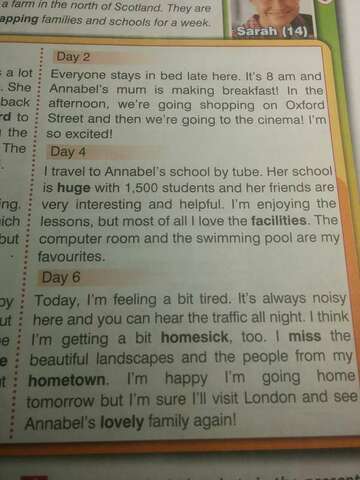 a farm in the north of Scotland. They are
apping families and schools for a week.
Sarah (14)
s a lot
. She
back
rd to
the
The
ing.
ich
but
by
ut
e
e
t
Day 2
Everyone stays in bed late here. It's 8 am and
Annabel's mum is making breakfast! In the
afternoon, we're going shopping on Oxford
Street and then we're going to the cinema! I'm
so excited!
Day 4
I travel to Annabel's school by tube. Her school
is huge with 1,500 students and her friends are
very interesting and helpful. I'm enjoying the
lessons, but most of all I love the facilities. The
computer room and the swimming pool are my
favourites.
Day 6
Today, I'm feeling a bit tired. It's always noisy
here and you can hear the traffic all night. I think
I'm getting a bit homesick, too. I miss the
beautiful landscapes and the people from my
hometown. I'm happy I'm going home
tomorrow but I'm sure I'll visit London and see
Annabel's lovely family again!